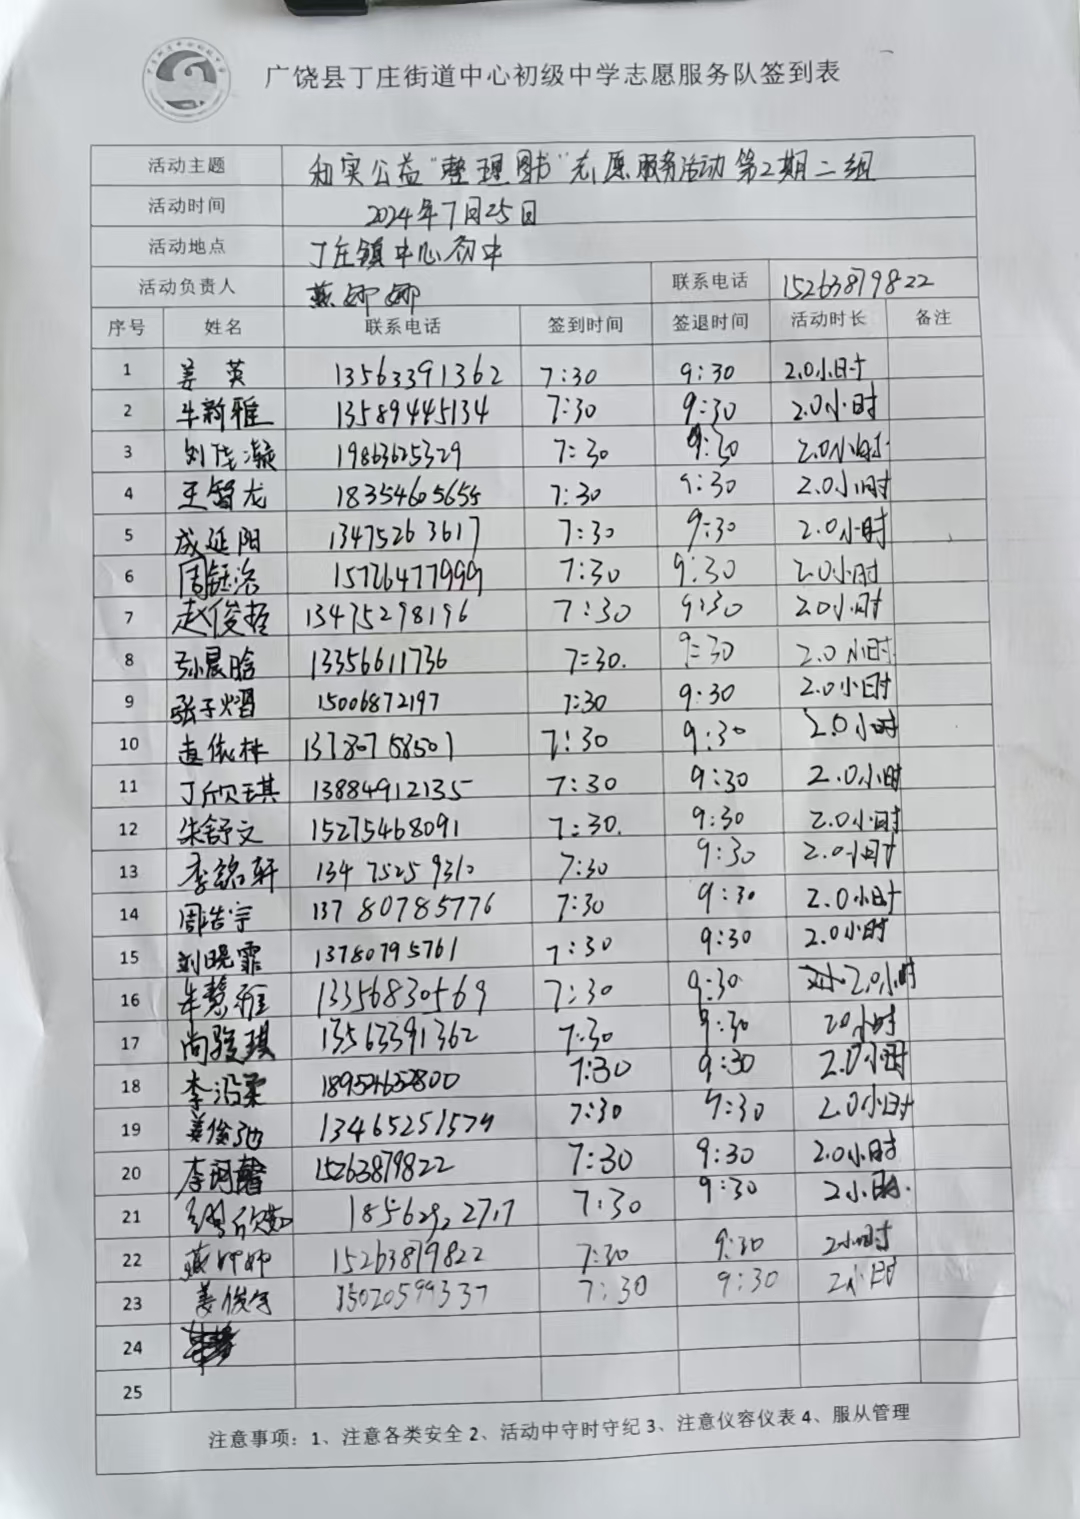 广饶县丁庄街道中心初级中学志愿服务队签到表
活动主题 和实公益"整理图书"志愿服务活动第2期二组
活动时间 2024年7月25日
活动地点 丁庄镇中心初中
活动负责人 燕娜娜 联系电话 15263879822
序号 姓名 联系电话 签到时间 签退时间 活动时长 备注
1 姜英 13563391362 7:30 9:30 2.0小时
2 牛新雅 13589445134 7:30 9:30 2.0小时
3 刘佳灏 19863625329 7:30 9:30 2.0小时
4 王智龙 18354605655 7:30 9:30 2.0小时
5 成延阳 13475263617 7:30 9:30 2.0小时
6 周钰洛 15726477999 7:30 9:30 2.0小时
7 赵俊哲 13475298196 7:30 9:30 2.0小时
8 孙晨晗 13356611736 7:30. 9:30 2.0小时
9 张子熠 15006872197 7:30 9:30 2.0小时
10 赵依林 13780768501 7:30 9:30 2.0小时
11 丁欣琪 13884912135 7:30 9:30 2.0小时
12 朱舒文 15275468091 7:30. 9:30 2.0小时
13 李铭轩 13475259310 7:30 9:30 2.0小时
14 周浩宇 13780785776 7:30 9:30 2.0小时
15 刘晓霏 13780795761 7:30 9:30 2.0小时
16 牛慧雅 13356830569 7:30 9:30 2.0小时
17 尚骏琪 13563391362 7:30 9:30 2.0小时
18 李沿柔 18954652800 7:30 9:30 2.0小时
19 姜俊驰 13465251579 7:30 9:30 2.0小时
20 李珂馨 15263879822 7:30 9:30 2.0小时
21 7:30 9:30 2小时.
22 燕娜娜 15263879822 7:30 9:30 2小时
23 姜俊宇 15020599337 7:30 9:30 2小时
24
25
注意事项：1、注意各类安全 2、活动中守时守纪 3、注意仪容仪表 4、服从管理